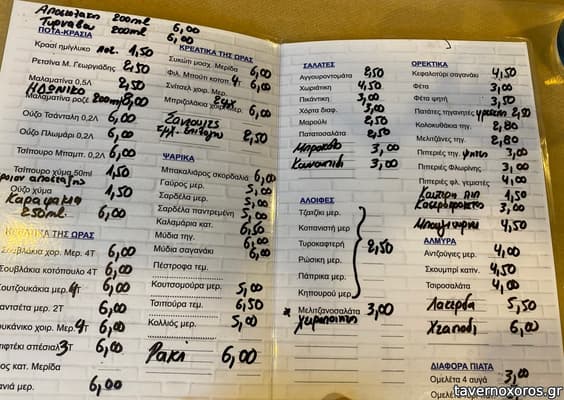 Αποστολάκη 200ml 6,00
Τυρνάβου 200ml 6,00
ΠΟΤΑ-ΚΡΑΣΙΑ
Κρασί ημίγλυκο ποτ. 1,50
Ρετσίνα Μ. Γεωργιάδης 2,50
Μαλαματίνα 0,5Λ 2,50
ΗΔΩΝΙΚΟ
Μαλαματίνα ροζέ 200ml 6,00
Ούζο Τσάνταλη 0,2Λ 6,00
Ούζο Πλωμάρι 0,2Λ 6,00
Τσίπουρο Μπαμπ. 0,2Λ 6,00
Τσίπουρο χύμα 50ml 1,50
Ούζο χύμα 1,50
Καραφάκια
250ml 6,00
ΤΗΣ ΩΡΑΣ
Σουβλάκια χοιρ. Μερ. 4Τ 6,00
Σουβλάκια κοτόπουλο 4Τ 6,00
Σουτζουκάκια μερ. 4 6,00
μερ. 2Τ 6,00
χοιρ. Μερ. 4Τ 6,00
σπέσιαλ 3Τ 6,00
κατ. Μερίδα
μερ. 6,00
ΚΡΕΑΤΙΚΑ ΤΗΣ ΩΡΑΣ
Συκώτι μοσχ. Μερίδα 6,00
Φιλ. Μπούτι κοτοπ. 4Τ 6,00
Σνίτσελ χοιρ. Μερ. 6,00
Μπριζολάκια χοιρ. 6,00
2,50
ΨΑΡΙΚΑ
Μπακαλιάρος σκορδαλιά 6,00
Γαύρος μερ. 5,00
Σαρδέλα μερ. 5,00
Σαρδέλα παντρεμένη 5,00
Καλαμάρια κατ. 6,50
Μύδια τηγ. 6,00
Μύδια σαγανάκι 6,00
Πέστροφα τεμ.
Κουτσομούρα μερ. 5,00
Τσιπούρα τεμ. 6,50
Κολλιός μερ. 5,00
Ρακί 6,00
ΣΑΛΑΤΕΣ
Αγγουροντομάτα 2,50
Χωριάτικη 4,50
Πικάντικη 3,00
Χόρτα διαφ. 3,00
Μαρούλι 2,50
Πατατοσαλάτα 2,50
Μπρόκολο 3,00
Κουνουπίδι 3,00
ΑΛΟΙΦΕΣ
Τζατζίκι μερ.
Κοπανιστή μερ
Τυροκαφτερή 2,50
Ρώσικη μερ.
Πάπρικα μερ.
Κηπουρού μερ
* Μελιτζανοσαλάτα 3,00
χειροποίητη
ΟΡΕΚΤΙΚΑ
Κεφαλοτύρι σαγανάκι 4,50
Φέτα 3,00
Φέτα ψητή 3,50
Πατάτες τηγανητές 2,50
Κολοκυθάκια τηγ. 2,80
Μελιτζάνες τηγ. 2,80
Πιπεριές τηγ. ψητές 3,00
Πιπεριές Φλωρίνης 3,00
Πιπεριές φλ. γεμιστές 4,00
1,50
3,00
Μπουγιουρντί 4,50
ΑΛΜΥΡΑ
Αντζούγιες μερ. 4,00
Σκουμπρί καπν. 4,50
Τσιροσαλάτα 4,00
Λακέρδα 5,50
Χταπόδι 6,00
ΔΙΑΦΟΡΑ ΠΙΑΤΑ
Ομελέτα 4 αυγά 3,00
Ομελέτα
tavernoxoros.gr